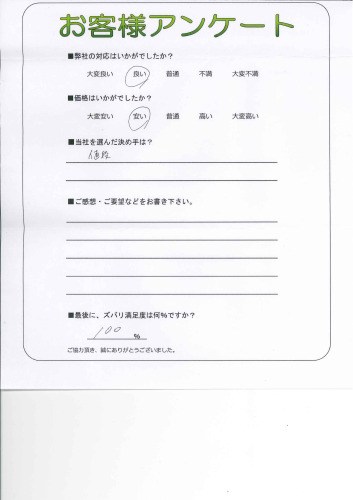 お客様アンケート
■弊社の対応はいかがでしたか？
大変良い 良い 普通 不満 大変不満
■価格はいかがでしたか？
大変安い 安い 普通 高い 大変高い
■当社を選んだ決め手は？
価段
■ご感想・ご要望などをお書き下さい。
■最後に、ズバリ満足度は何%ですか？
100 %
ご協力頂き、誠にありがとうございました。